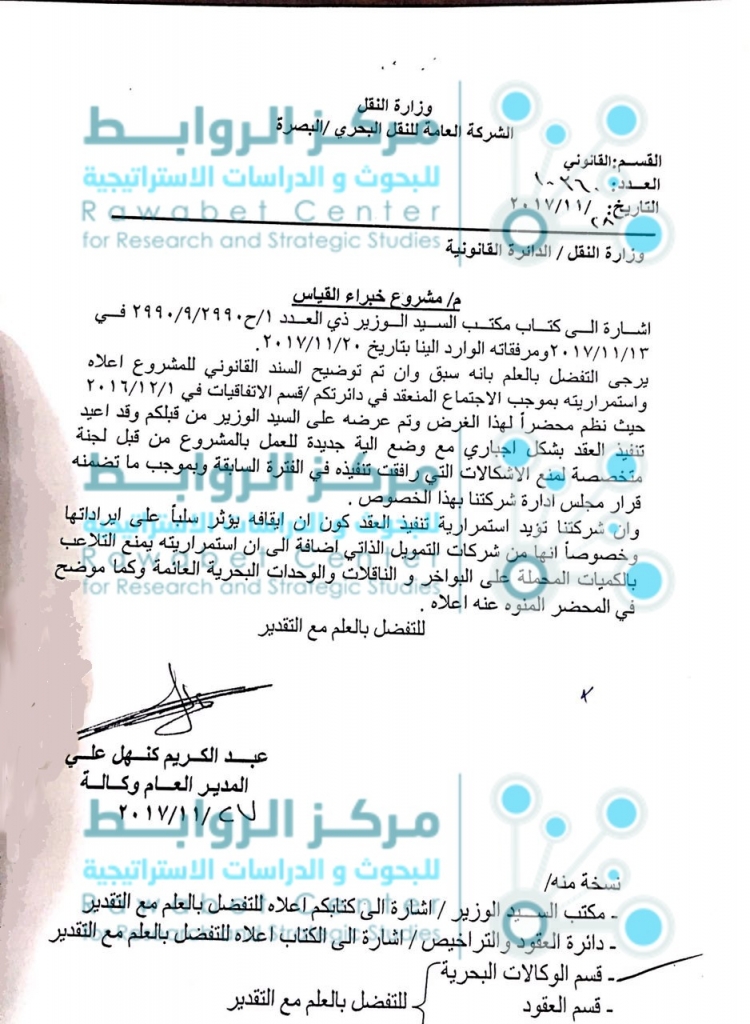 وزارة النقل
الشركة العامة للنقل البحري /البصرة
القسم:القانوني
العدد:
التاريخ: ٢٨ /٢٠١٧/١١
وزارة النقل / الدائرة القانونية
م/ مشروع خبراء القياس
اشارة الى كتاب مكتب السيد الوزير ذي العدد ١/ح٢٩٩٠/٩/٢٩٩٠ في
٢٠١٧/١١/١٣ومرفقاته الوارد الينا بتاريخ ٢٠١٧/١١/٢٠.
يرجى التفضل بالعلم بانه سبق وان تم توضيح السند القانوني للمشروع اعلاه
واستمراريته بموجب الاجتماع المنعقد في دائرتكم /قسم الاتفاقيات في ٢٠١٦/١٢/١
حيث نظم محضراً لهذا الغرض وتم عرضه على السيد الوزير من قبلكم وقد اعيد
تنفيذ العقد بشكل اجباري مع وضع الية جديدة للعمل بالمشروع من قبل لجنة
متخصصة لمنع الاشكالات التي رافقت تنفيذه في الفترة السابقة وبموجب ما تضمنه
قرار مجلس ادارة شركتنا بهذا الخصوص .
وان شركتنا تؤيد استمرارية تنفيذ العقد كون ان ايقافه يؤثر سلباً على ايراداتها
وخصوصاً انها من شركات التمويل الذاتي اضافة الى ان استمراريته يمنع التلاعب
بالكميات المحملة على البواخر و الناقلات والوحدات البحرية العائمة وكما موضح
في المحضر المنوه عنه اعلاه .
للتفضل بالعلم مع التقدير
عبد الكريم كنهل علي
المدير العام وكالة
٢٧/٢٠١٧/١١
نسخة منه/
- مكتب السيد الوزير / اشارة الى كتابكم اعلاه للتفضل بالعلم مع التقدير
- دائرة العقود والتراخيص / اشارة الى الكتاب اعلاه للتفضل بالعلم مع التقدير
- قسم الوكالات البحرية
- قسم العقود
للتفضل بالعلم مع التقدير
مركز الروابط
للبحوث و الدراسات الاستراتيجية
Rawabet Center
for Research and Strategic Studies
مركز الروابط
للبحوث و الدراسات الاستراتيجية
Rawabet Center
for Research and Strategic Studies
مركز الروابط
للبحوث و الدراسات الاستراتيجية
Rawabet Center
for Research and Strategic Studies